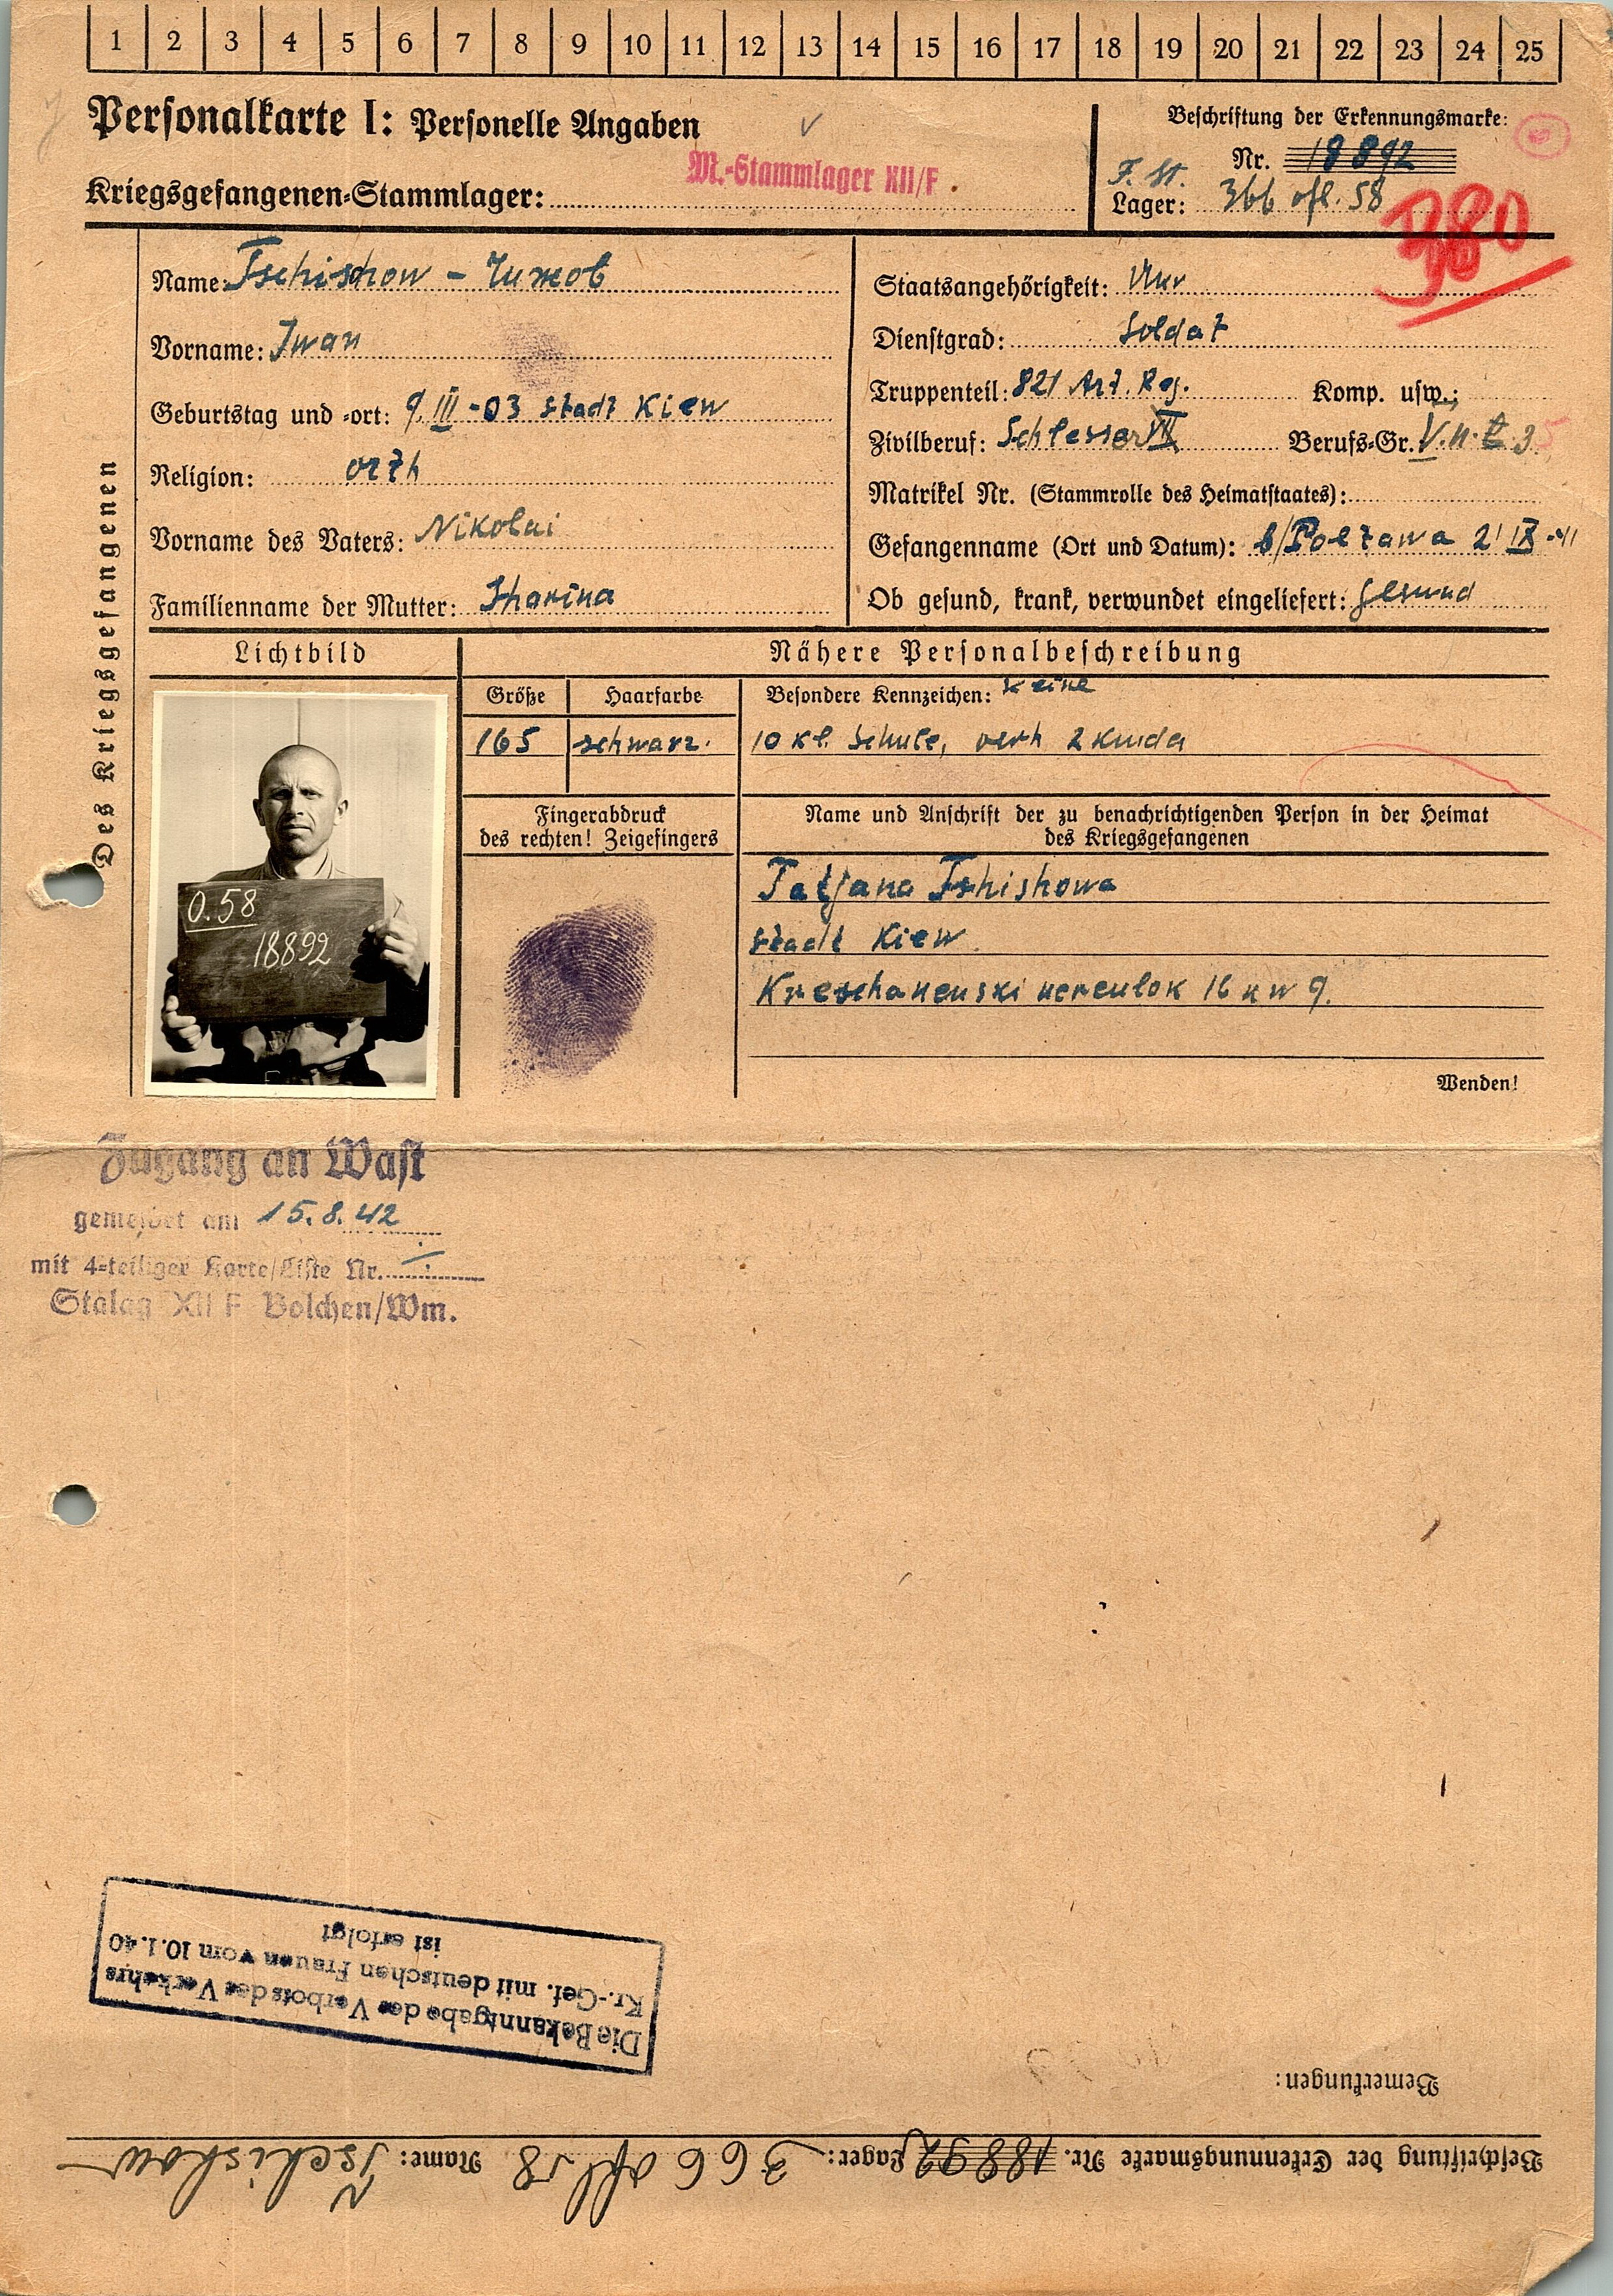 1 2 3 4 5 6 7 8 9 10 11 12 13 14 15 16 17 18 19 20 21 22 23 24 25
Personalkarte I: Personelle Angaben
Kriegsgefangenen-Stammlager:
M.-Stammlager XII/F
Beschriftung der Erkennungsmarke:
Nr. 18892
F. St.
Lager: 366 ofl. 58
Des Kriegsgefangenen
Name: Tschischow - Чижов
Vorname: Iwan
Geburtstag und -ort: 9. III - 03 Stadt Kiew
Religion: orth
Vorname des Vaters: Nikolai
Familienname der Mutter:
Staatsangehörigkeit: Ukr
Dienstgrad: Soldat
Truppenteil: 821 Art. Reg. Komp. usw.:
Zivilberuf: Schlesser Berufs-Gr.
Matrikel Nr. (Stammrolle des Heimatstaates):
Gefangenname (Ort und Datum): b/Poltawa 21 IX - 41
Ob gesund, krank, verwundet eingeliefert: gesund
Lichtbild
Nähere Personalbeschreibung
Größe Haarfarbe Besondere Kennzeichen: Keine
165 schwarz. 10 Kl. Schule, verh 2 Kinder
0.58
18892
Fingerabdruck
des rechten! Zeigefingers
Name und Anschrift der zu benachrichtigenden Person in der Heimat
des Kriegsgefangenen
Tatjana Tshishowa
Stadt Kiew
16 kw 9.
Wenden!
Zugang an Wast
gemeldet am 15.8.42
mit 4-teiliger Karte/Liste Nr.
Stalag XII F Bolchen/Wm.
Die Bekanntgabe des Verbots des Verkehrs
Kr.-Gef. mit deutschen Frauen vom 10.1.40
ist erfolgt
Bemerkungen:
Beschriftung der Erkennungsmarke Nr. 18892 Lager: 366 ofl 58 Name: Tschishow